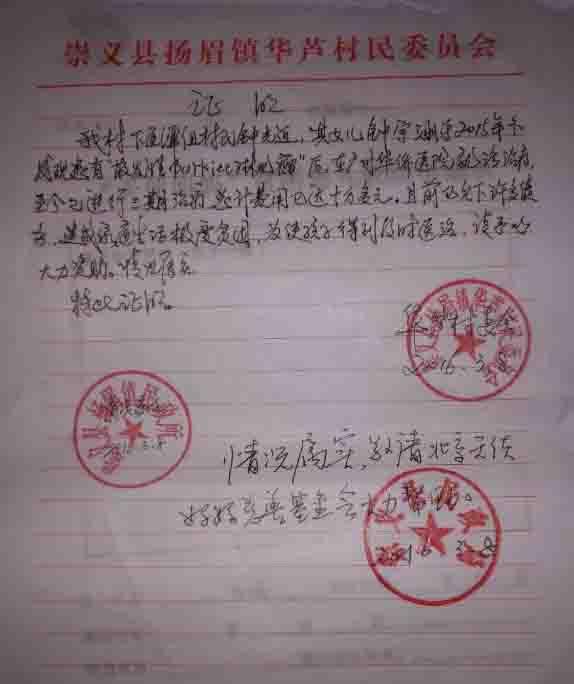 崇义县扬眉镇华芦村民委员会
证 明
我村下屋潭组村民钟 ，其女儿钟宇涵于2015年
发现患有 淋巴瘤"后，在广州华侨医院就诊治疗，
至今已进行三期治疗，总计费用已达十万多元。目前仍欠下许多债
务，造成家庭生活极度贫困，为使孩子得到及时医治，请予以
大力资助。情况属实
特此证明。
华芦村委会
2016.3.8
2016.3.8
情况属实，敬请北京天使
妈妈慈善基金会大力帮助。
2016.3.8